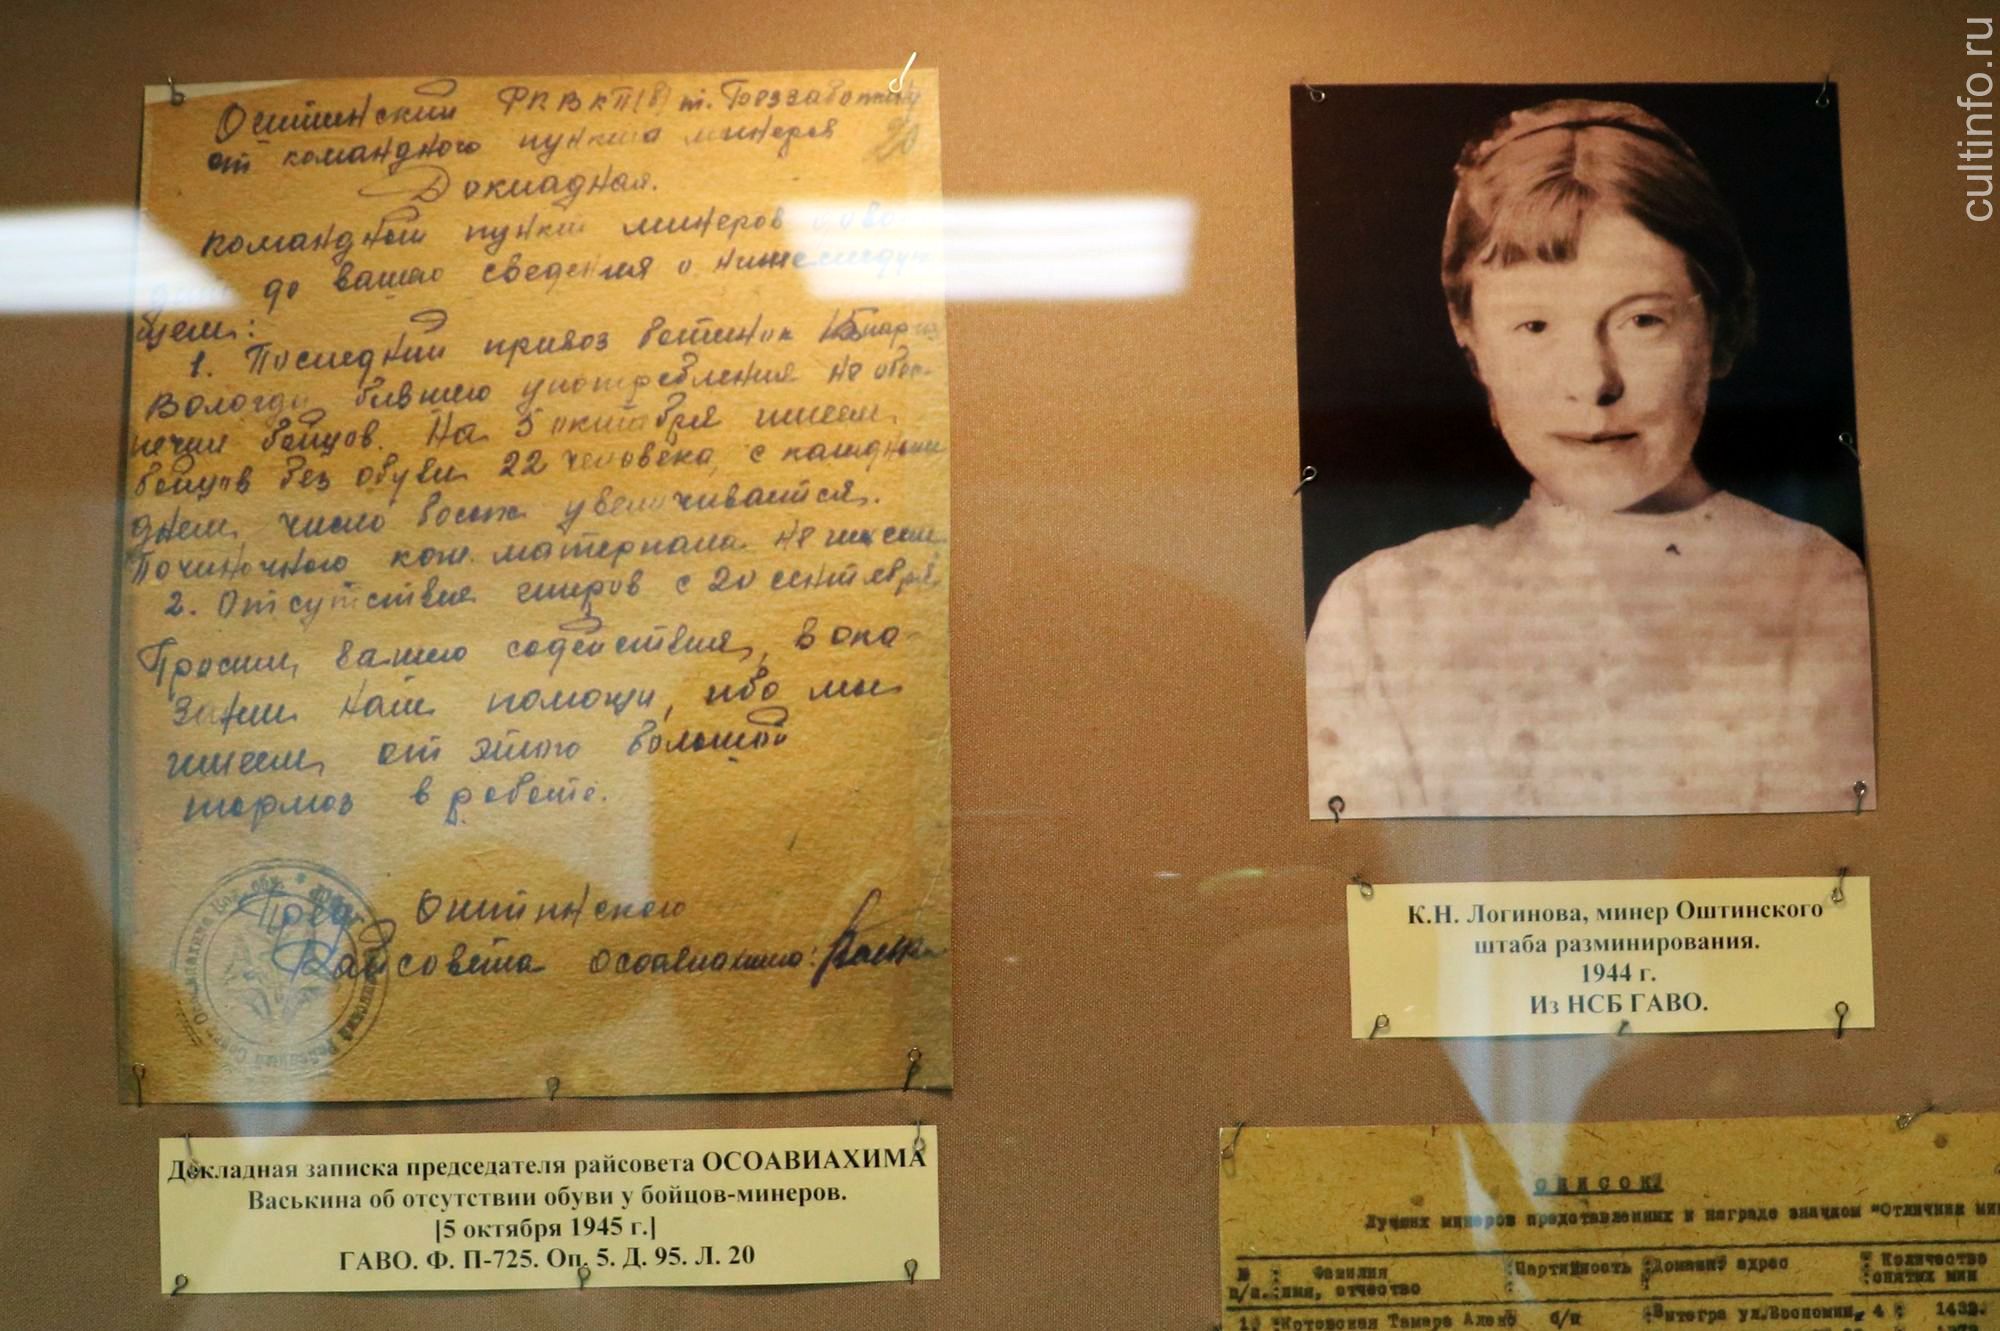 Оштинский РК ВКП(б) т.
от командного пункта минеров
20
Докладная.
Командный пункт минеров
до вашего сведения о нижеследую
щем:
1. Последний привоз ботинок
Вологды бывшего употребления не обес-
печил бойцов. На 5 октября имеем
бойцов без обуви 22 человека, с каждым
днем число босых увеличивается.
Починочного кож. материала не имеем.
2. Отсутствие жиров с 20 сентября.
Просим вашего содействия, в ока-
зании нам помощи, ибо мы
имеем от этого большой
тормоз в работе.
Пред. Оштинского
Райсовета осоавиахима:
Докладная записка председателя райсовета ОСОАВИАХИМА
Васькина об отсутствии обуви у бойцов-минеров.
[5 октября 1945 г.]
ГАВО. Ф. П-725. Оп. 5. Д. 95. Л. 20
К.Н. Логинова, минер Оштинского
штаба разминирования.
1944 г.
Из НСБ ГАВО.
СПИСОК
Лучших минеров представленных к награде значком "Отличник
№ Фамилия Партийность Домашн. адрес Количество
п/п. имя, отчество снятых мин
1 Котовская Тамара б/п Витегра 4 1432.
cultinfo.ru